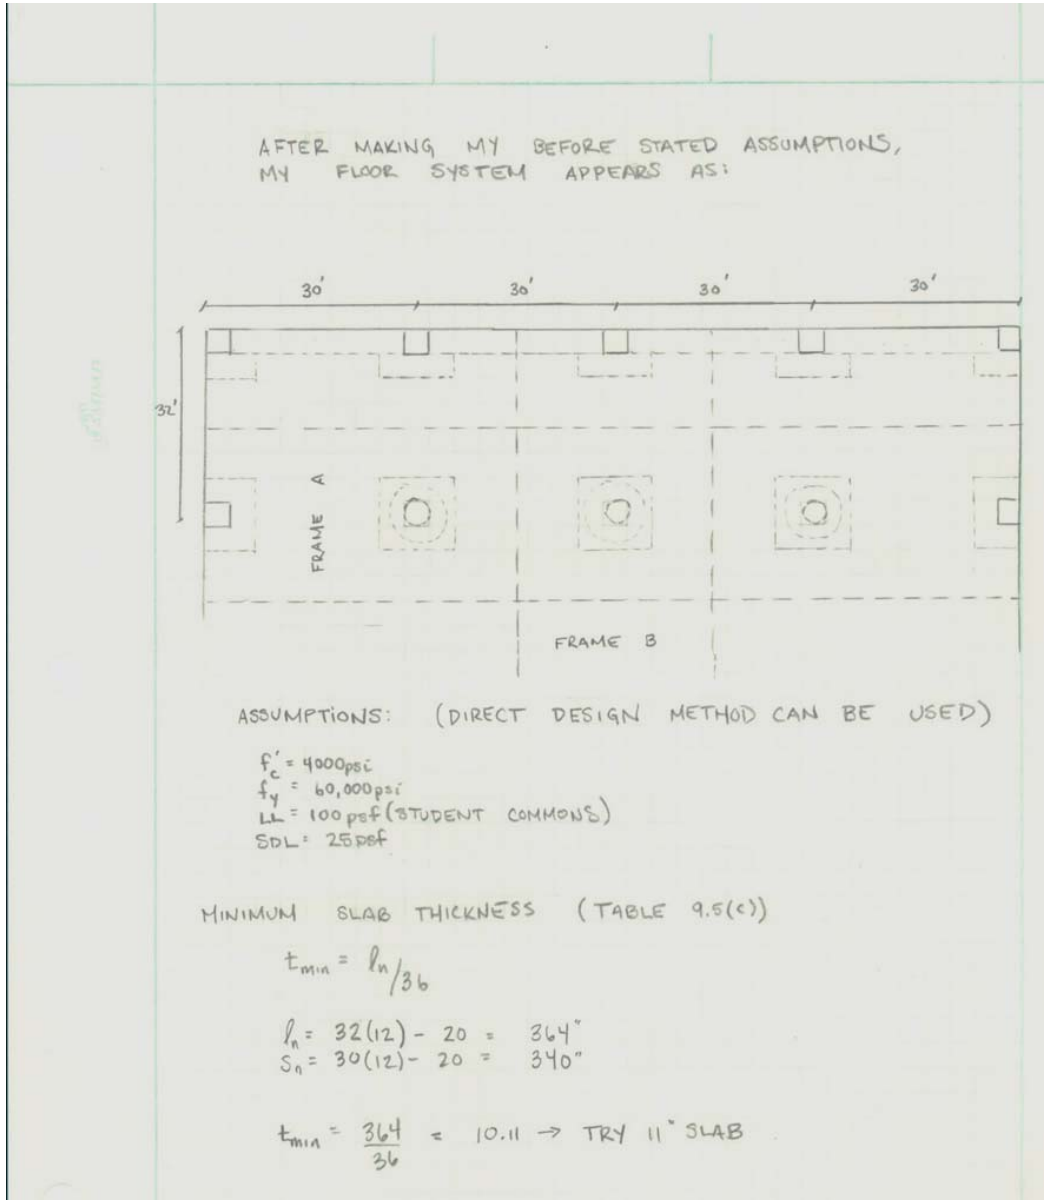 AFTER MAKING MY BEFORE STATED ASSUMPTIONS,
MY FLOOR SYSTEM APPEARS AS:
30' 30' 30' 30'
32'
FRAME A
FRAME B
ASSUMPTIONS: (DIRECT DESIGN METHOD CAN BE USED)
f'c = 4000psi
fy = 60,000psi
LL = 100 psf (STUDENT COMMONS)
SDL = 25 psf
MINIMUM SLAB THICKNESS (TABLE 9.5(c))
tmin = ln/36
ln = 32(12) - 20 = 364"
Sn = 30(12) - 20 = 340"
tmin = 364/36 = 10.11 → TRY 11" SLAB